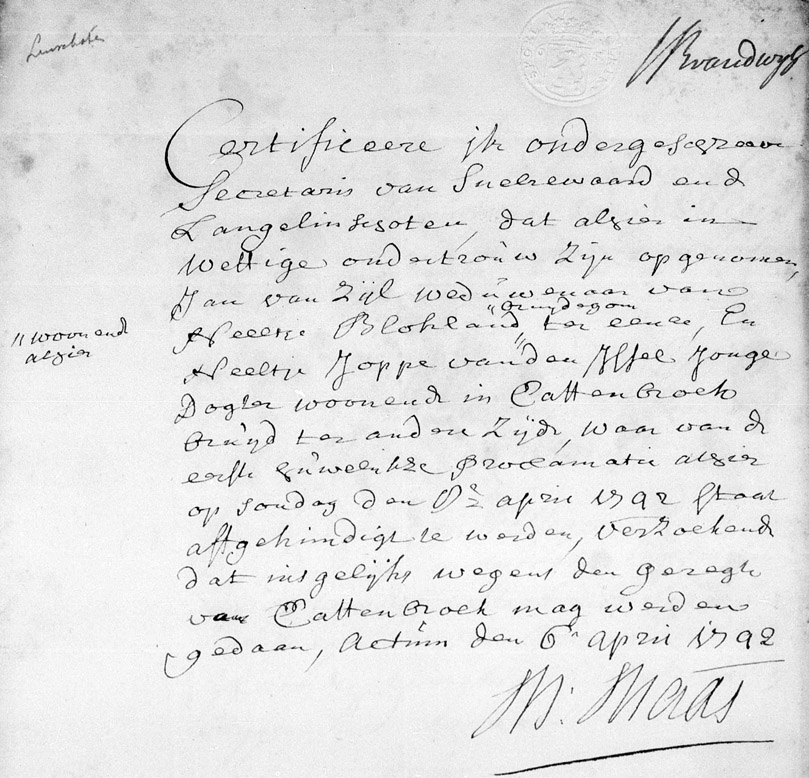 Linschoten
Certificeere ik ondergeschreeven
Secretaris van Snelrewaard end
Langelinschoten, dat alhier in
Wettige ondertrouw Zijn opgenomen,
Jan van Zijl weduwenaar van
bruijdegom
Neeltje Blokland " ter eenre, En
" woonende
alhier
Neeltje Joppe van den IJssel Jonge
Dogter woonende in Cattenbroek
bruijd ter andere Zijde, waar van de
eerste huwelijkze Proclamatie alhier
op sondag den 8e april 1792 staat
affgekundigt te werden, Verzoekende
dat insgelijks wegens den Geregte
van Cattenbroek mag werden
gedaan, Actum den 6e april 1792
M: Maas